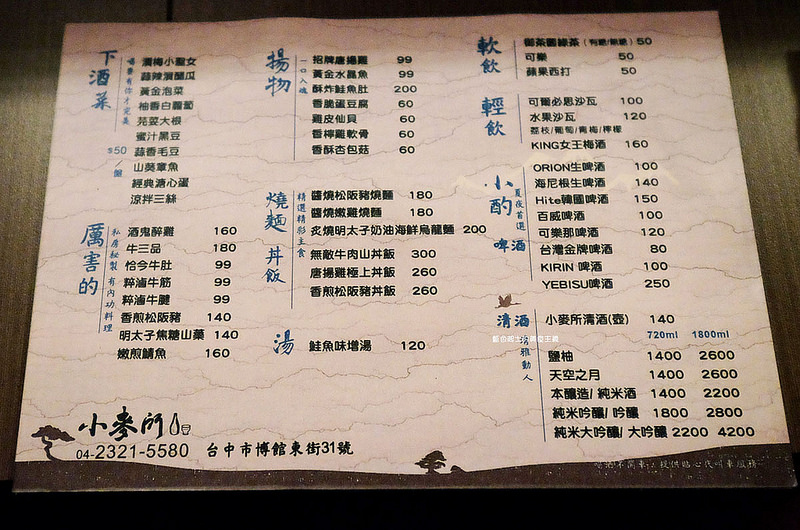 下酒菜
喝醬有你才完美
$50/盤
漬梅小聖女
蒜辣漬醋瓜
黃金泡菜
柚香白蘿蔔
芫荽大根
蜜汁黑豆
蒜香毛豆
山葵章魚
經典溏心蛋
涼拌三絲
厲害的
私房秘製 有內功料理
酒鬼醉雞 160
牛三品 180
恰今牛肚 99
粹滷牛筋 99
粹滷牛腱 99
香煎松阪豬 140
明太子焦糖山藥 140
嫩煎鯖魚 160
揚物
一口入魂
招牌唐揚雞 99
黃金水晶魚 99
酥炸鮭魚肚 200
香脆蛋豆腐 60
雞皮仙貝 60
香檸雞軟骨 60
香酥杏包菇 60
燒麵 丼飯
精選精彩主食
醬燒松阪豬燒麵 180
醬燒嫩雞燒麵 180
炙燒明太子奶油海鮮烏龍麵 200
無敵牛肉山丼飯 300
唐揚雞極上丼飯 260
香煎松阪豬丼飯 260
湯
鮭魚味增湯 120
軟飲
御茶園綠茶(有糖/無糖) 50
可樂 50
蘋果西打 50
輕飲
可爾必思沙瓦 100
水果沙瓦 120
荔枝/葡萄/青梅/檸檬
KING女王梅酒 160
小酌 啤酒
夏夜首選
ORION生啤酒 100
海尼根生啤酒 140
Hite韓國啤酒 150
百威啤酒 100
可樂那啤酒 120
台灣金牌啤酒 80
KIRIN 啤酒 100
YEBISU啤酒 250
清酒
清雅動人
小麥所清酒(壺) 140
720ml 1800ml
鹽柚 1400 2600
天空之月 1400 2600
本釀造/ 純米酒 1400 2200
純米吟釀/ 吟釀 1800 2800
純米大吟釀/ 大吟釀 2200 4200
小麥所
04-2321-5580 台中市博館東街31號
喝酒不開車,提供貼心代叫車服務